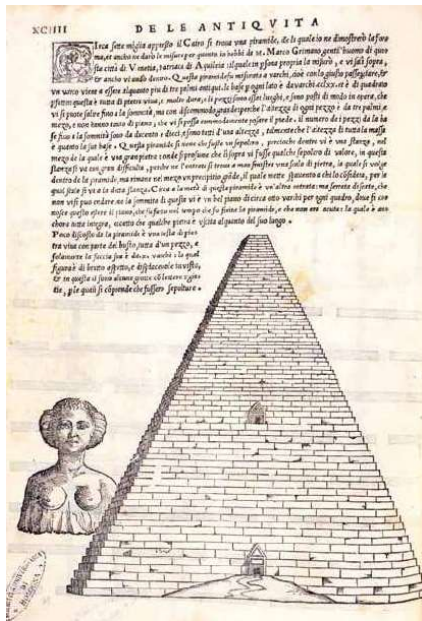 XCIIII DE LE ANTIQVITA
CIrca sette miglia appresso il Cairo si trova una piramide, de la quale io ne dimostrerò la for
ma, et anche ne darò le misure per quanto io hebbi da M. Marco Grimano gentil'huomo di que
sta città di Venetia, Patriarca di Aquileia: il quale in persona propria la misurò, e vi salì sopra,
& anche vi andò dentro. Questa piramide fu misurata a varchi, cioè con lo giusto passeggiare, &
un varco viene a essere alquanto piu di tre palmi antiqui. la base p ogni lato è da varchi. cclxx. et è di quadrato
pfetto: questa è tutta di pietra viva, e molto dura, e i pezzi sono assai lunghi, e sono posti di modo in opera, che
vi si puote salire fino a la sommità, ma con discommodo grande: perche l'altezza di ogni pezzo è da tre palmi, e
mezo, e non hanno tanto di piano, che vi si possa commodamente posare il piede. il numero dei pezzi da la ba
se fino a la sommità sono da ducento e dieci, e sono tutti d'una altezza, talmente che l'altezza di tutta la massa
è quanto la sua base. Questa piramide si tiene che fusse un sepolcro, percioche dentro vi è una stanza, nel
mezo de la quale è una gran pietra: onde si prosume che ivi sopra vi fusse qualche sepoltura di valore, in questa
stanza si va con gran difficulta, perche ne l'entrata si trova a man sinistra una scala di pietra, la quale si volge
dentro de la piramide, ma rimane nel mezo un precipitio grande, il quale mette spavento a chi lo considera, per le
qual scale si va a la dicta stanza. Circa a la metà di questa piramide è un'altra entrata: ma serrata di sorte, che
non visi puo andare. ne la sommità di questa vi è un bel piano di circa otto varchi per ogni quadro, dove si co
nosce questo essere il piano, che fu fatto nel tempo che fu finita la piramide, e che non era acuta: la quale è an
chora tutta integra, eccetto che qualche pietra è uscita alquanto del suo luogo.
Poco discosto da la piramide è una testa di pie
tra viva con parte del busto, tutta d'un pezzo, e
solamente la faccia sua è da. x. varchi: la qual
figura è di brutto aspetto, e dispiacevole in vista,
& in questa vi sono alcune grotte cō lettere egit
tie, p le quali si cōprende che fussero sepolture.